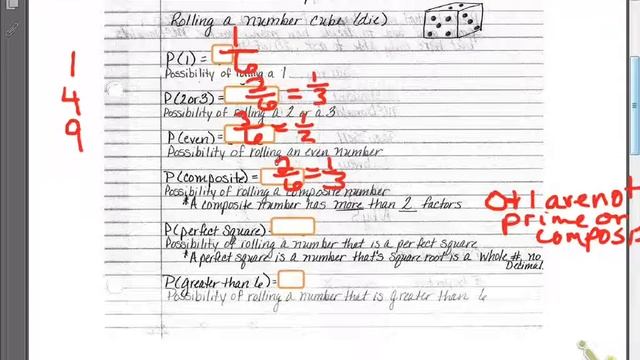 Rolling a number cube (die)
1
4
9
P(1) = 1/6
Possibility of rolling a 1
P(2 or 3) = 2/6 = 1/3
Possibility of rolling a 2 or a 3
P(even) = 3/6 = 1/2
Possibility of rolling an even number
P(composite) = 2/6 = 1/3
Possibility of rolling a composite number
*A composite number has more than 2 factors
0+1 are not
prime or
composi
P(perfect square) =
Possibility of rolling a number that is a perfect square
*A perfect square is a number that's square root is a whole #, no
Decimal.
P(greater than 6) =
Possibility of rolling a number that is greater than 6